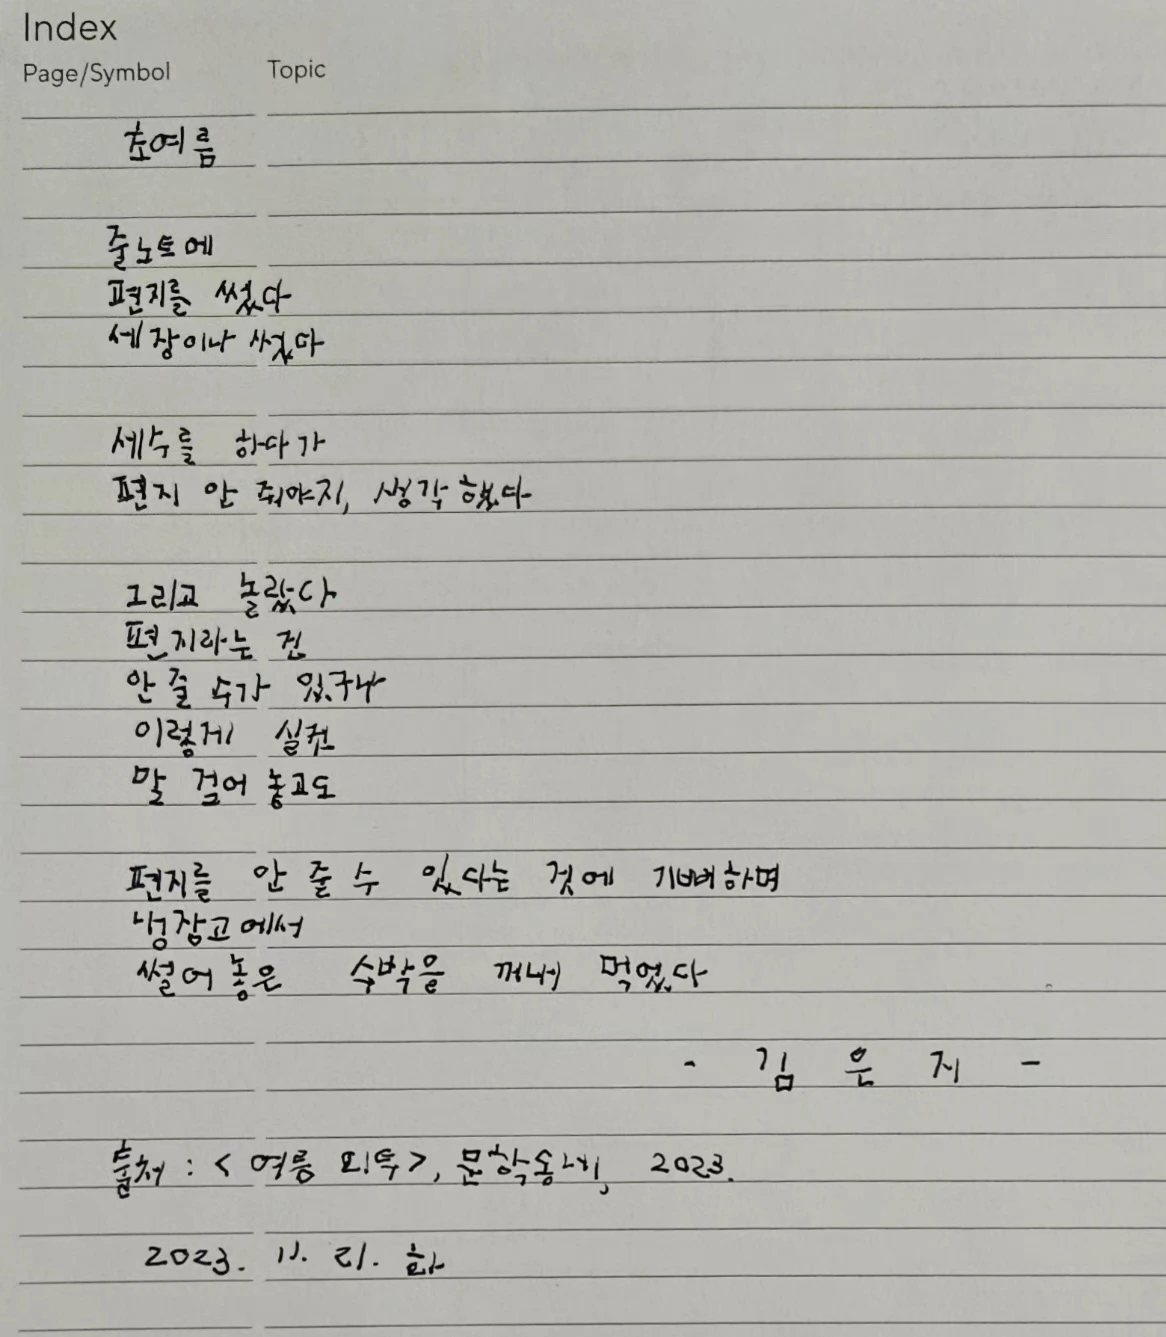 Index
Page/Symbol Topic
초여름
줄노트에
편지를 썼다
세 장이나 썼다
세수를 하다가
편지 안 줘야지, 생각했다
그리고 놀랐다
편지라는 건
안 줄 수가 있구나
이렇게 실컷
말 걸어 놓고도
편지를 안 줄 수 있다는 것에 기뻐하며
냉장고에서
썰어 놓은 수박을 꺼내 먹었다
- 김은지 -
출처 : < 여름 외투>, 문학동네, 2023.
2023. 11. 21. 화